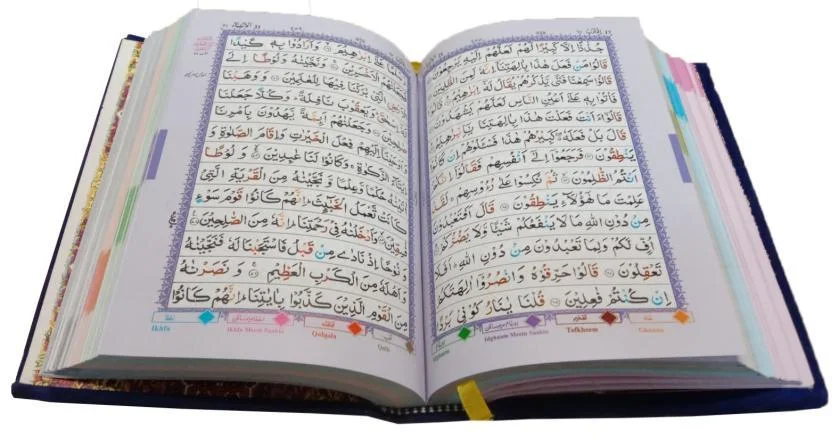 جُذٰذًا اِلَّا كَبِیْرًا لَّهُمْ لَعَلَّهُمْ اِلَیْهِ یَرْجِعُوْنَ
قَالُوْا مَنْ فَعَلَ هٰذَا بِاٰلِهَتِنَاۤ اِنَّهٗ لَمِنَ الظّٰلِمِیْنَ
قَالُوْا سَمِعْنَا فَتًی یَّذْكُرُهُمْ یُقَالُ لَهٗۤ اِبْرٰهِیْمُ قَالُوْا
فَاْتُوْا بِهٖ عَلٰۤی اَعْیُنِ النَّاسِ لَعَلَّهُمْ یَشْهَدُوْنَ
قَالُوْۤا ءَاَنْتَ فَعَلْتَ هٰذَا بِاٰلِهَتِنَا یٰۤاِبْرٰهِیْمُ
قَالَ بَلْ فَعَلَهٗ كَبِیْرُهُمْ هٰذَا فَسْـَٔلُوْهُمْ اِنْ كَانُوْا
یَنْطِقُوْنَ فَرَجَعُوْۤا اِلٰۤی اَنْفُسِهِمْ فَقَالُوْۤا اِنَّكُمْ
اَنْتُمُ الظّٰلِمُوْنَ ثُمَّ نُكِسُوْا عَلٰی رُءُوْسِهِمْ لَقَدْ
عَلِمْتَ مَا هٰۤؤُلَآءِ یَنْطِقُوْنَ قَالَ اَفَتَعْبُدُوْنَ
مِنْ دُوْنِ اللّٰهِ مَا لَا یَنْفَعُكُمْ شَیْـًٔا وَّلَا یَضُرُّكُمْ
اُفٍّ لَّكُمْ وَلِمَا تَعْبُدُوْنَ مِنْ دُوْنِ اللّٰهِ اَفَلَا
تَعْقِلُوْنَ قَالُوْا حَرِّقُوْهُ وَانْصُرُوْۤا اٰلِهَتَكُمْ
اِنْ كُنْتُمْ فٰعِلِیْنَ قُلْنَا یٰنَارُ كُوْنِیْ بَرْدًا
Idgham Meem Saakin
Tafkheem
Ghunna
عَلٰۤی اِبْرٰهِیْمَ وَاَرَادُوْا بِهٖ كَیْدًا
الْاَخْسَرِیْنَ وَنَجَّیْنٰهُ وَلُوْطًا اِلَی
الَّتِیْ بٰرَكْنَا فِیْهَا لِلْعٰلَمِیْنَ وَوَهَبْنَا
وَیَعْقُوْبَ نَافِلَةً وَكُلًّا جَعَلْنَا
وَجَعَلْنٰهُمْ اَىِٕمَّةً یَّهْدُوْنَ بِاَمْرِنَا
وَاَوْحَیْنَاۤ اِلَیْهِمْ فِعْلَ الْخَیْرٰتِ وَاِقَامَ الصَّلٰوةِ وَ
اِیْتَآءَ الزَّكٰوةِ وَكَانُوْا لَنَا عٰبِدِیْنَ وَلُوْطًا
اٰتَیْنٰهُ حُكْمًا وَّعِلْمًا وَّنَجَّیْنٰهُ مِنَ الْقَرْیَةِ الَّتِیْ
كَانَتْ تَّعْمَلُ الْخَبٰٓىِٕثَ اِنَّهُمْ كَانُوْا قَوْمَ سَوْءٍ
فٰسِقِیْنَ وَاَدْخَلْنٰهُ فِیْ رَحْمَتِنَا اِنَّهٗ مِنَ الصّٰلِحِیْنَ
وَنُوْحًا اِذْ نَادٰی مِنْ قَبْلُ فَاسْتَجَبْنَا لَهٗ فَنَجَّیْنٰهُ
وَاَهْلَهٗ مِنَ الْكَرْبِ الْعَظِیْمِ وَنَصَرْنٰهُ
مِنَ الْقَوْمِ الَّذِیْنَ كَذَّبُوْا بِاٰیٰتِنَا اِنَّهُمْ كَانُوْا
Ikhfa
Ikhfa Meem Saakin
Qalqala
Qalb